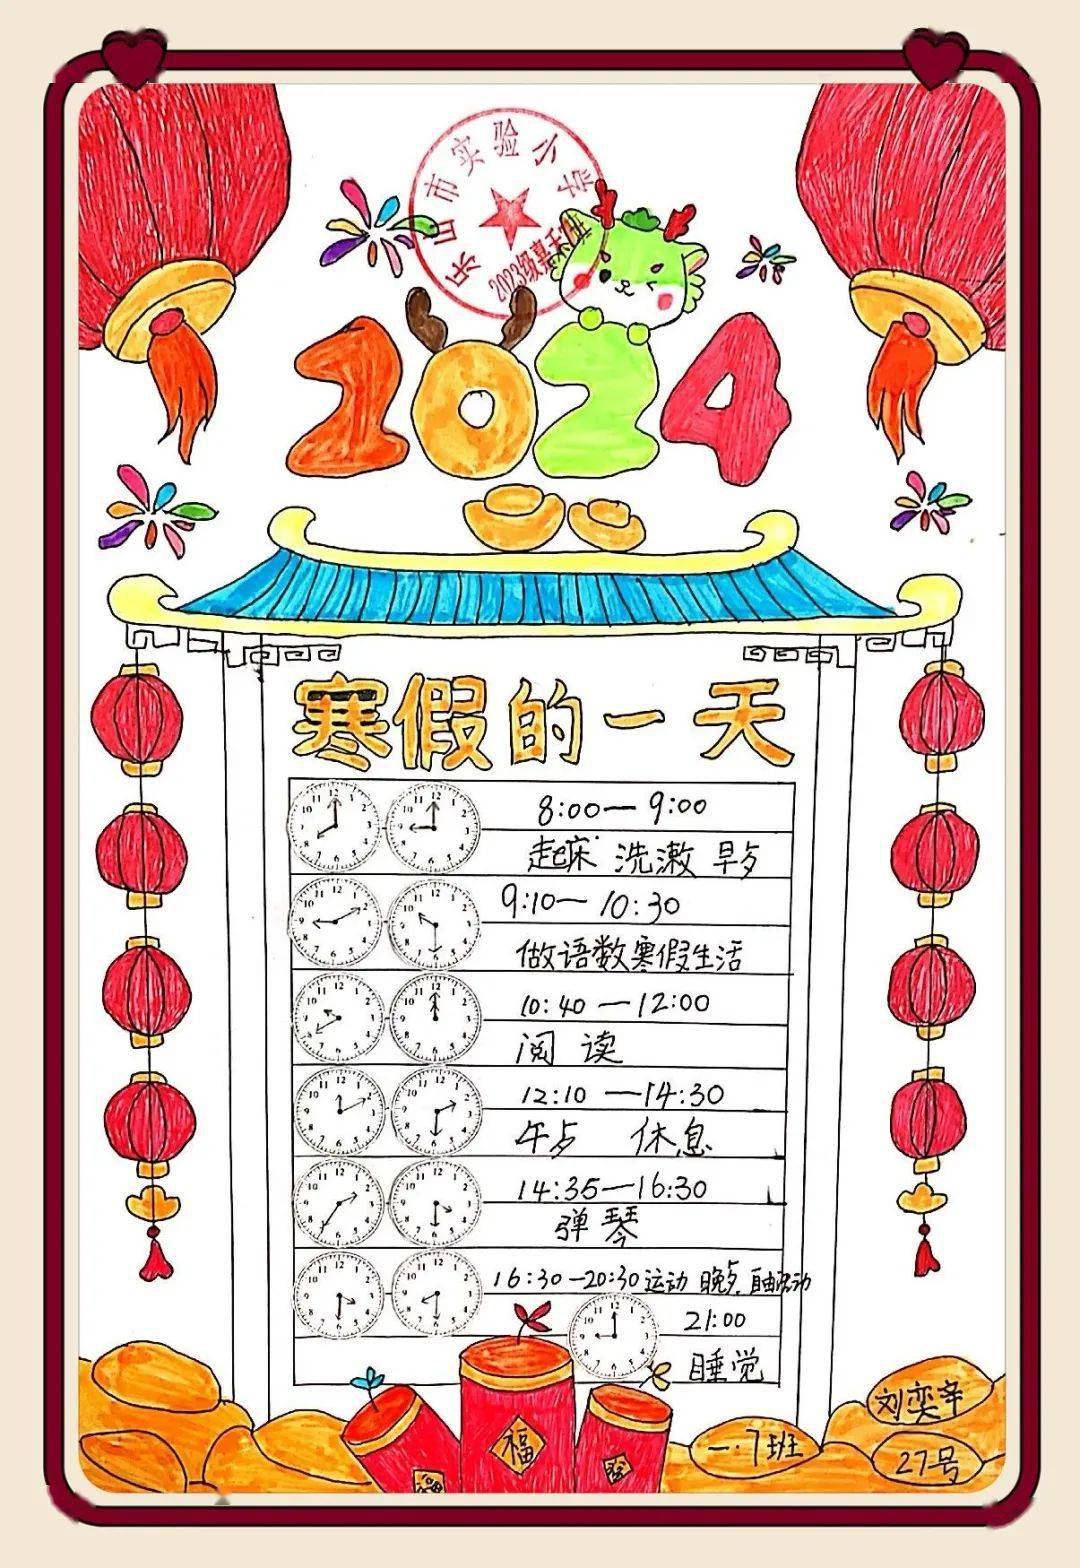 乐山市实验小学
2023级嘉禾班
2024
寒假的一天
8:00—9:00
起床 洗漱 早夕
9:10—10:30
做语数寒假生活
10:40—12:00
阅读
12:10—14:30
午夕 休息
14:35—16:30
弹琴
16:30—20:30 运动 晚夕 自由活动
21:00
睡觉
福
福
刘奕辛
一.7班
27号